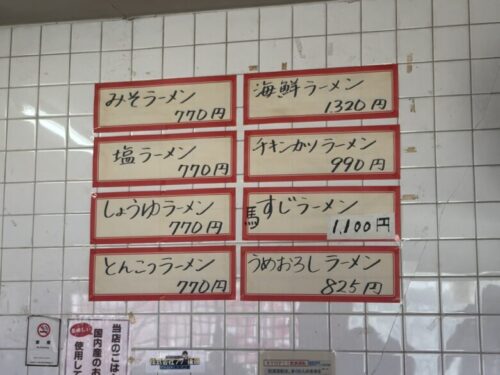 みそラーメン
770円
塩ラーメン
770円
しょうゆラーメン
770円
とんこつラーメン
770円
海鮮ラーメン
1320円
チキンカツラーメン
990円
馬すじラーメン
1,100円
うめおろしラーメン
825円
禁煙
美味しい
当店のごは
国内産のお
使用して